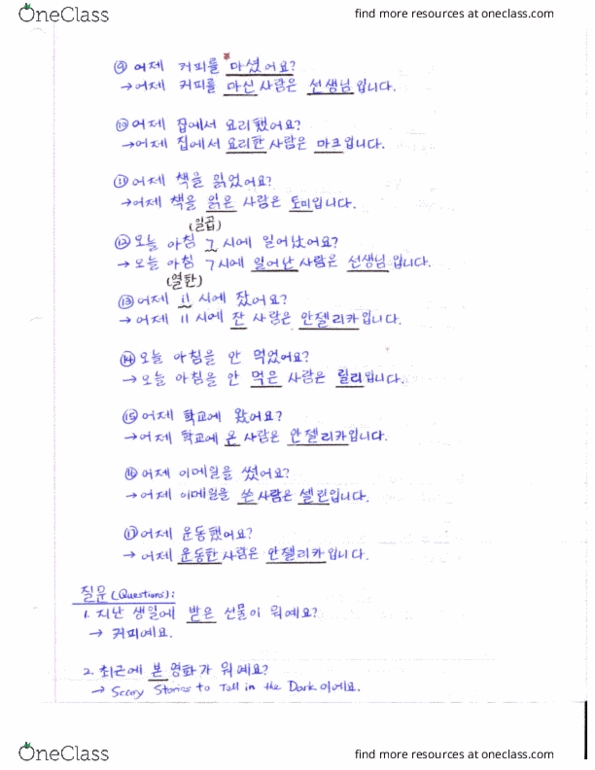 OneClass
find more resources at oneclass.com
⑨ 어제 커피를 마셨어요?
→ 어제 커피를 마신 사람은 선생님입니다.
⑩ 어제 집에서 요리했어요?
→ 어제 집에서 요리한 사람은 마크입니다.
⑪ 어제 책을 읽었어요?
→ 어제 책을 읽은 사람은 토미입니다.
(일곱)
⑫ 오늘 아침 7시에 일어났어요?
→ 오늘 아침 7시에 일어난 사람은 선생님입니다.
(열한)
⑬ 어제 11시에 잤어요?
→ 어제 11시에 잔 사람은 안젤리카입니다.
⑭ 오늘 아침을 안 먹었어요?
→ 오늘 아침을 안 먹은 사람은 릴리입니다.
⑮ 어제 학교에 왔어요?
→ 어제 학교에 온 사람은 안젤리카입니다.
⑯ 어제 이메일을 썼어요?
→ 어제 이메일을 쓴 사람은 셀린입니다.
⑰ 어제 운동했어요?
→ 어제 운동한 사람은 안젤리카입니다.
질문 (Questions):
1. 지난 생일에 받은 선물이 뭐예요?
→ 커피예요.
2. 최근에 본 영화가 뭐예요?
→ Scary Stories to Tell in the Dark 이에요.
OneClass
find more resources at oneclass.com